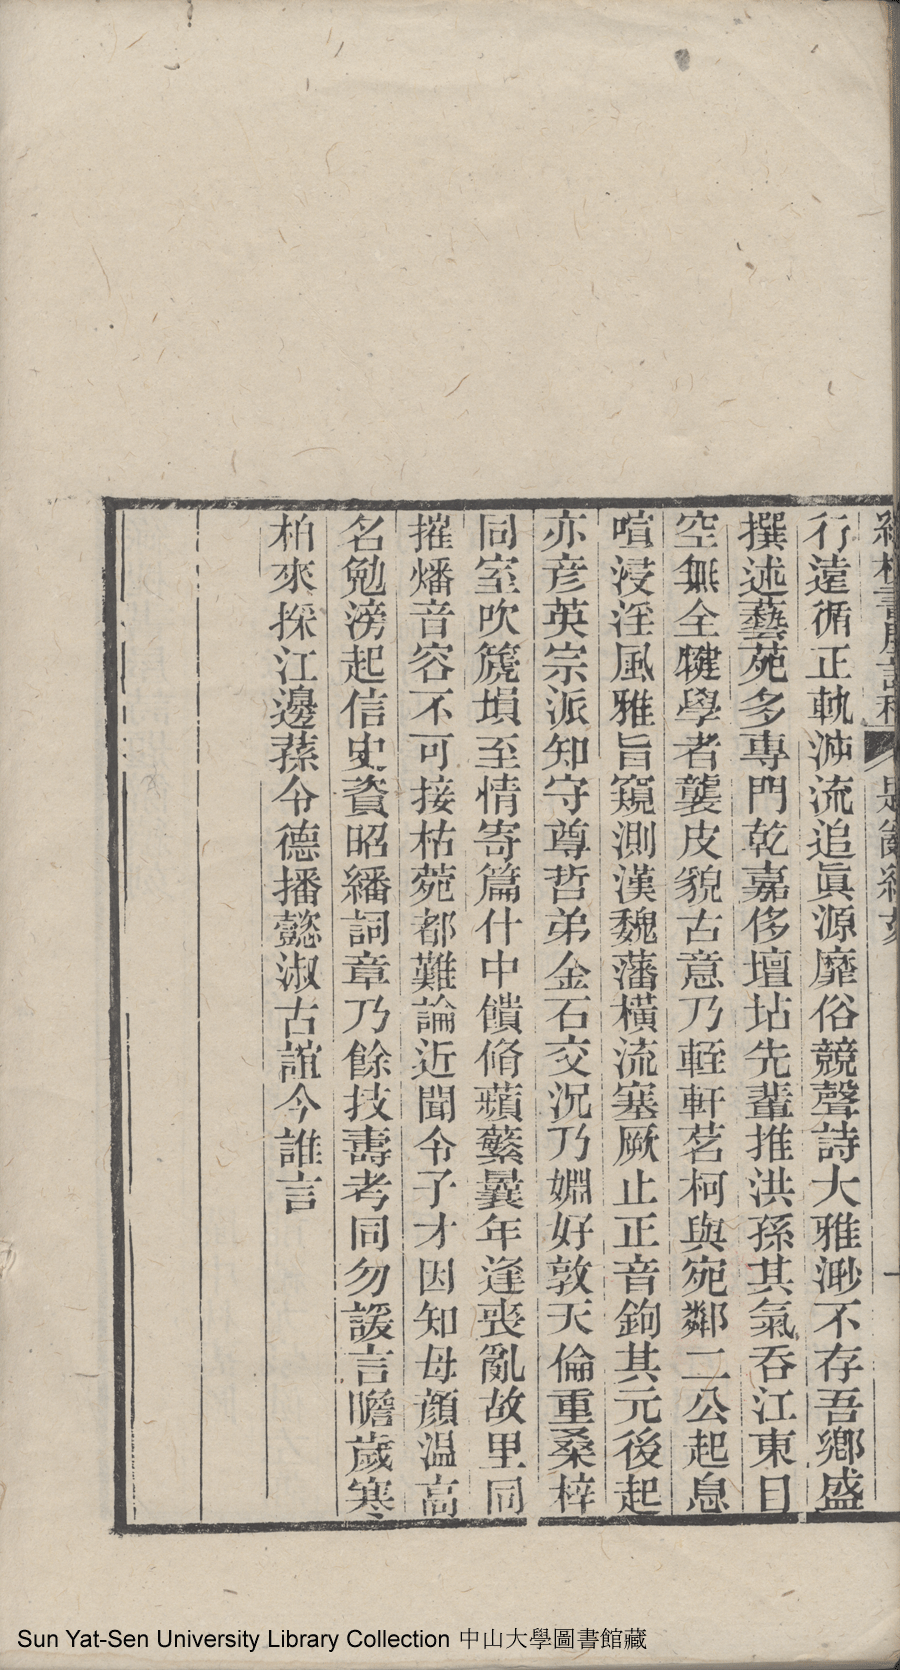 行遠循正軌泝流追眞源靡俗競聲詩大雅渺不存吾鄉盛
撰述藝苑多專門乾嘉侈壇坫先輩推洪孫其氣吞江東目
空無全犍學者襲皮貌古意乃輊軒茗柯與宛鄰二公起息
喧浸淫風雅旨窺測漢魏藩橫流塞厥止正音鉤其元後起
亦彥英宗派知守尊哲弟金石交況乃姻好敦天倫重桑梓
同室吹篪塤至情寄篇什中饋脩蘋蘩曩年逢喪亂故里同
摧燔音容不可接枯菀都難論近聞令子才因知母顏溫高
名勉滂起信史資昭繙詞章乃餘技壽考同勿諼言瞻歲寒
柏來採江邊蓀令德播懿淑古誼今誰言
Sun Yat-Sen University Library Collection 中山大學圖書館藏